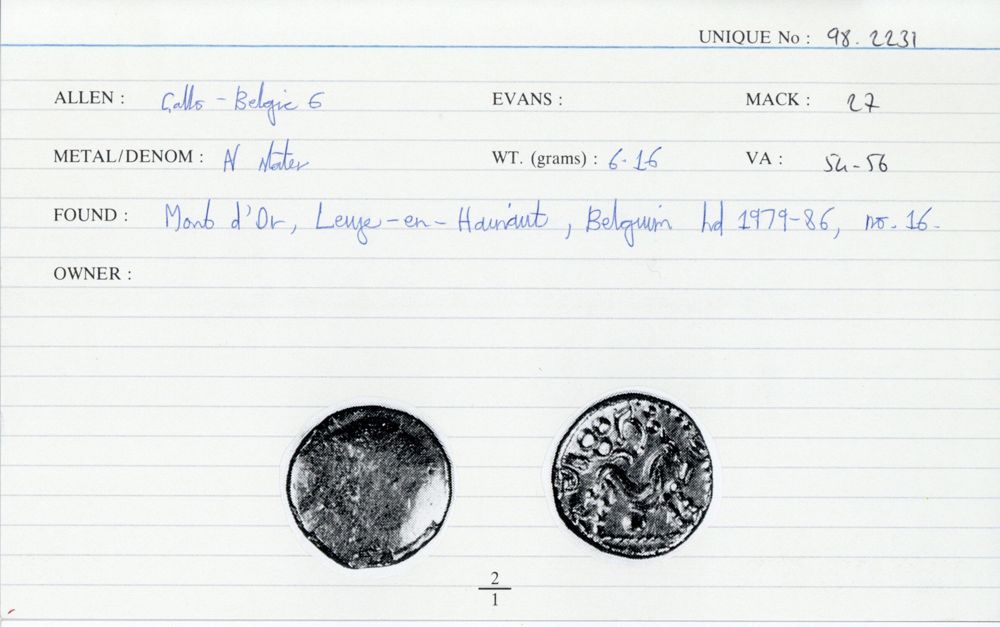 UNIQUE No : 98.2231
ALLEN : Gallo-Belgic E EVANS : MACK : 27
METAL/DENOM : AV stater WT. (grams) : 6.16 VA : 54-56
FOUND : Mont d'Or, Leuze-en-Hainaut, Belguim hd 1979-86, no. 16.
OWNER :
2
1